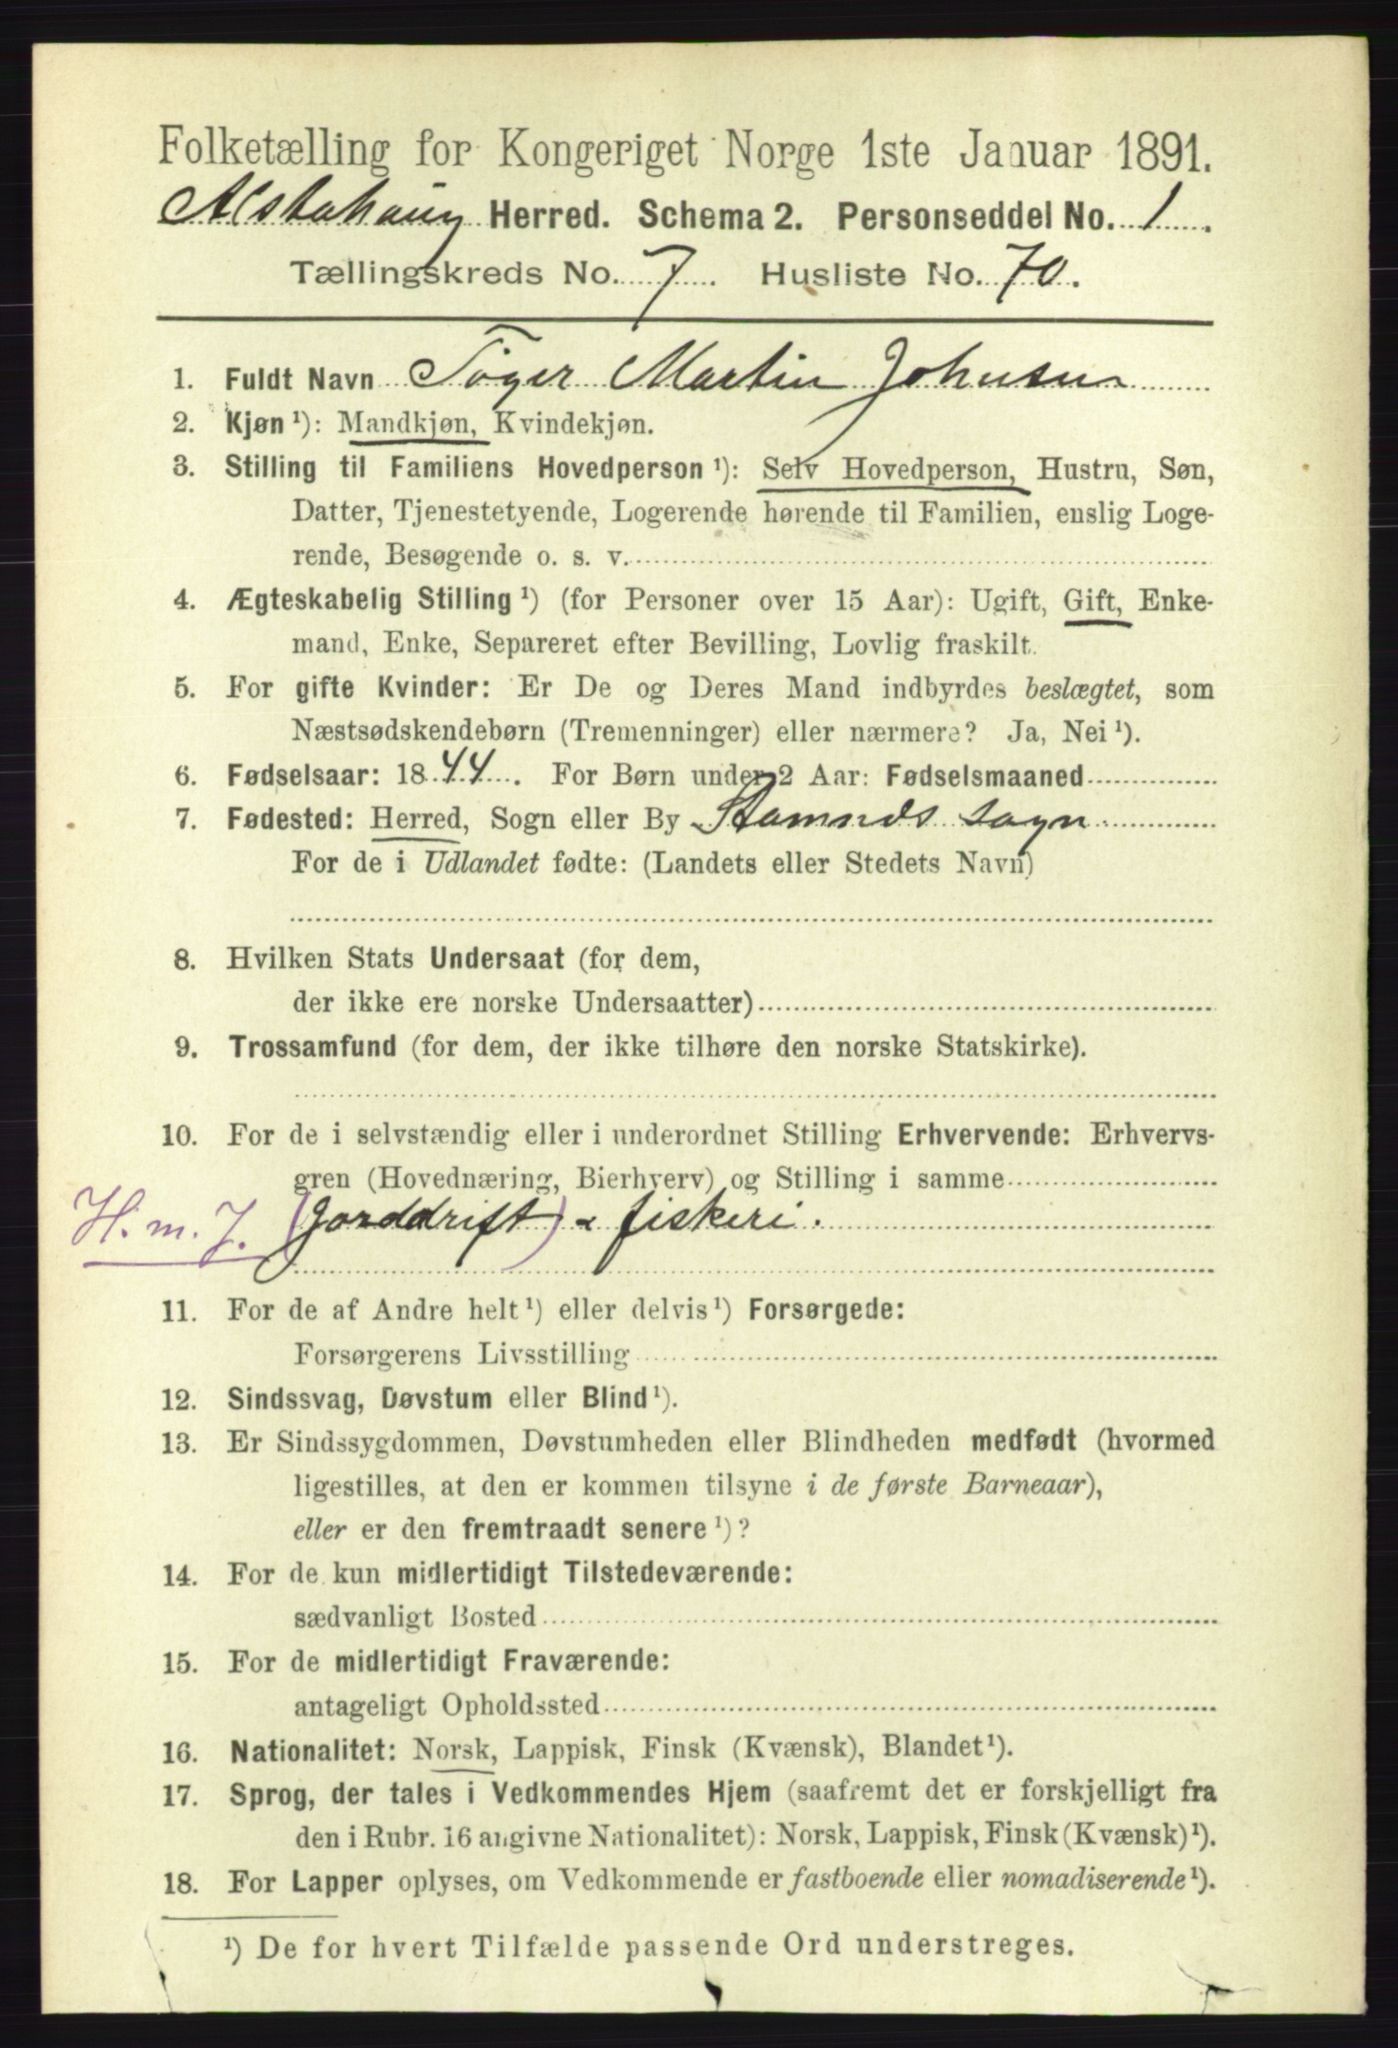 Folketælling for Kongeriget Norge 1ste Januar 1891.
Alstahaug Herred. Schema 2. Personseddel No. 1.
Tællingskreds No. 7. Husliste No. 70.
1. Fuldt Navn Töger Martin Johnsen
2. Kjøn ¹): Mandkjøn, Kvindekjøn.
3. Stilling til Familiens Hovedperson ¹): Selv Hovedperson, Hustru, Søn,
Datter, Tjenestetyende, Logerende hørende til Familien, enslig Loge-
rende, Besøgende o. s. v.
4. Ægteskabelig Stilling ¹) (for Personer over 15 Aar): Ugift, Gift, Enke-
mand, Enke, Separeret efter Bevilling, Lovlig fraskilt.
5. For gifte Kvinder: Er De og Deres Mand indbyrdes beslægtet, som
Næstsødskendebørn (Tremenninger) eller nærmere? Ja, Nei ¹).
6. Fødselsaar: 1844. For Børn under 2 Aar: Fødselsmaaned
7. Fødested: Herred, Sogn eller By Stamnes sogn
For de i Udlandet fødte: (Landets eller Stedets Navn)
8. Hvilken Stats Undersaat (for dem,
der ikke ere norske Undersaatter)
9. Trossamfund (for dem, der ikke tilhøre den norske Statskirke).
10. For de i selvstændig eller i underordnet Stilling Erhvervende: Erhvervs-
gren (Hovednæring, Bierhverv) og Stilling i samme
H. m. J. (Jorddrift) - fiskeri.
11. For de af Andre helt ¹) eller delvis ¹) Forsørgede:
Forsørgerens Livsstilling
12. Sindssvag, Døvstum eller Blind ¹).
13. Er Sindssygdommen, Døvstumheden eller Blindheden medfødt (hvormed
ligestilles, at den er kommen tilsyne i de første Barneaar),
eller er den fremtraadt senere ¹)?
14. For de kun midlertidigt Tilstedeværende:
sædvanligt Bosted
15. For de midlertidigt Fraværende:
antageligt Opholdssted
16. Nationalitet: Norsk, Lappisk, Finsk (Kvænsk), Blandet ¹).
17. Sprog, der tales i Vedkommendes Hjem (saafremt det er forskjelligt fra
den i Rubr. 16 angivne Nationalitet): Norsk, Lappisk, Finsk (Kvænsk) ¹).
18. For Lapper oplyses, om Vedkommende er fastboende eller nomadiserende ¹).
¹) De for hvert Tilfælde passende Ord understreges.